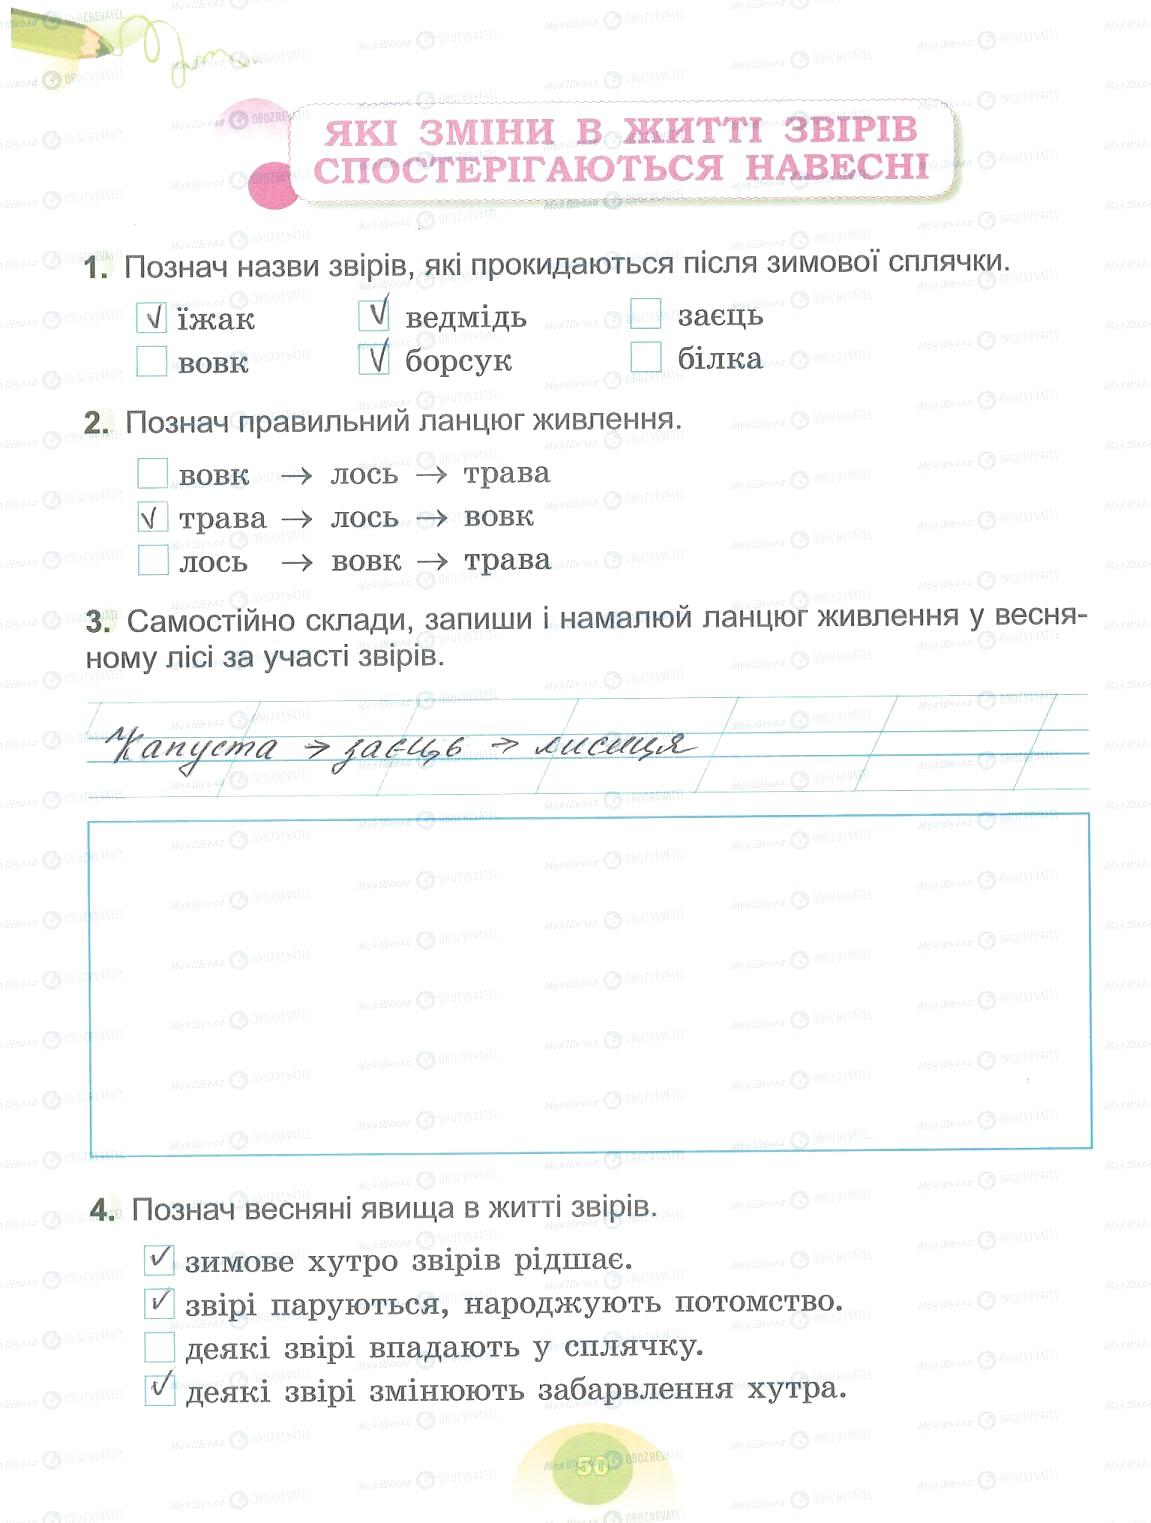 ЯКІ ЗМІНИ В ЖИТТІ ЗВІРІВ
СПОСТЕРІГАЮТЬСЯ НАВЕСНІ
1. Познач назви звірів, які прокидаються після зимової сплячки.
√ їжак √ ведмідь заєць
вовк √ борсук білка
2. Познач правильний ланцюг живлення.
вовк → лось → трава
√ трава → лось → вовк
лось → вовк → трава
3. Самостійно склади, запиши і намалюй ланцюг живлення у весня-
ному лісі за участі звірів.
Капуста → заєць → лисиця
4. Познач весняні явища в житті звірів.
✓ зимове хутро звірів рідшає.
✓ звірі паруються, народжують потомство.
деякі звірі впадають у сплячку.
✓ деякі звірі змінюють забарвлення хутра.
50
МояШкола OBOZREVATEL